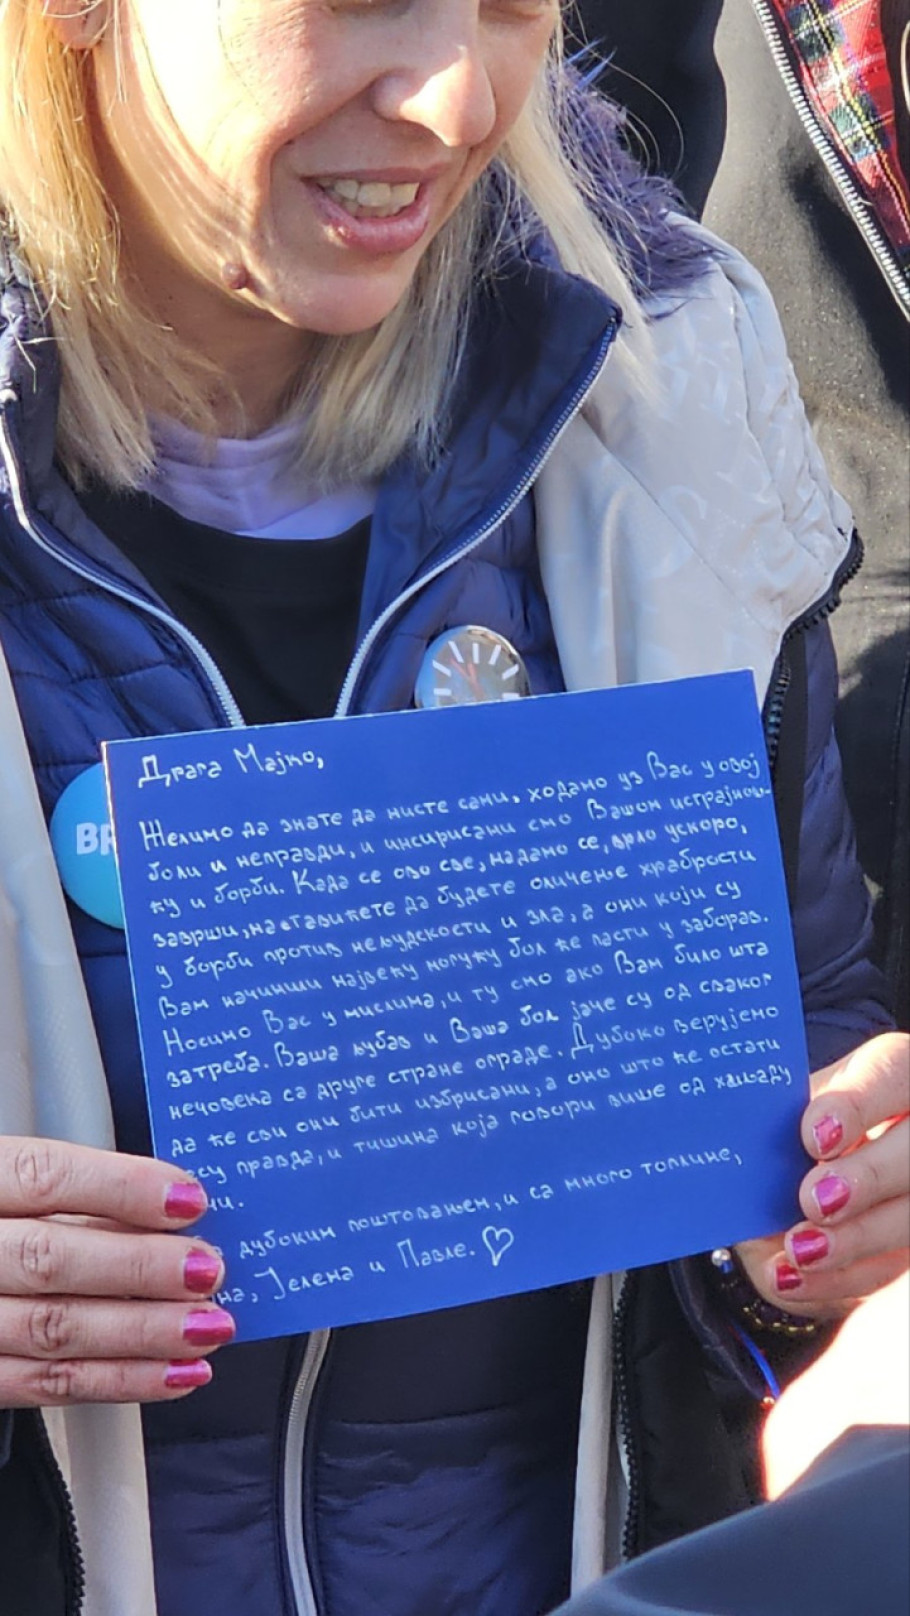 BR
Драга Мајко,
Желимо да знате да нисте сами, ходамо уз Вас у овој
боли и неправди, и инсирисани смо Вашом истрајнош-
ћу и борби. Када се ово све, надамо се, врло ускоро,
заврши, наставићете да будете оличење храбрости
у борби против нељудскости и зла, а они који су
Вам начинили највећу могућу бол ће пасти у заборав.
Носимо Вас у мислима, и ту смо ако Вам било шта
затреба. Ваша љубав и Ваша бол јаче су од сваког
нечовека са друге стране ограде. Дубоко верујемо
да ће сви они бити избрисани, а оно што ће остати
есу правда, и тишина која говори више од хиљаду
чи.
дубоким поштовањем, и са много топлине,
на, Јелена и Павле. ♡